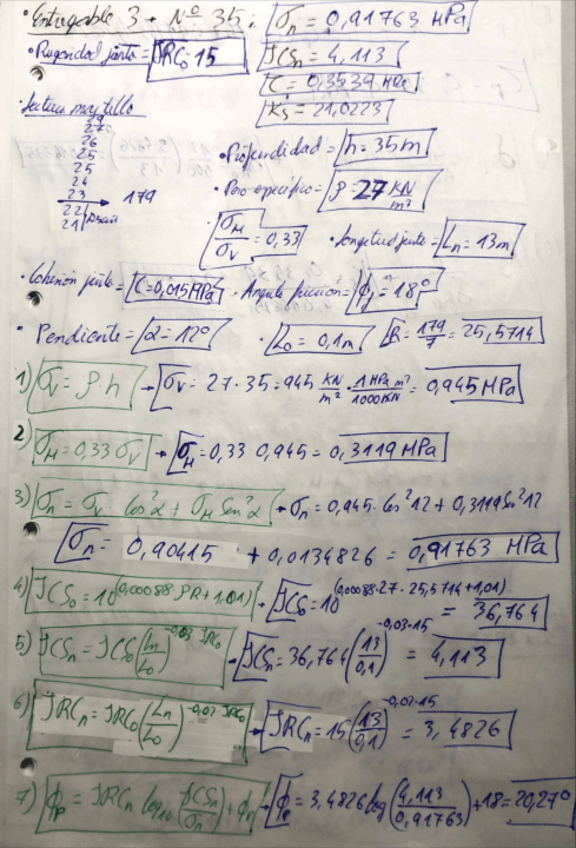 • Entregable 3 • Nº 35: σn = 0,91763 MPa
• Rugosidad junta = JRC0 = 15 JCSn = 4,113
C = 0,3539 MPa
KS = 21,0223
• Lectura martillo
29
27
26
25
25
24
23 → 179
22
21
• Profundidad = h = 35m
• Peso específico = ρ = 27 KN/m²
σH/σV = 0,33 • Longitud junta = Ln = 13m
• Cohesión junta = C = 0,015 MPa • Angulo fricción = ϕj = 18°
• Pendiente = α = 12° • L0 = 0,1m R = 179/7 = 25,5714
1) σV = ρ h → σV = 27 · 35 = 945 KN/m² · 1 MPa m²/1000 KN = 0,945 MPa
2) σH = 0,33 σV → σH = 0,33 0,945 = 0,3119 MPa
3) σn = σV cos²α + σH Sen²α → σn = 0,945 · Cos²12 + 0,3119 Sen²12
σn = 0,90415 + 0,0134826 = 0,91763 MPa
4) JCS0 = 10^(0,00088 ρR + 1,01) → JCS0 = 10^(0,00088 · 27 · 25,5714 + 1,01) = 36,764
5) JCSn = JCS0 (Ln/L0)^-0,03 JRC0 → JCSn = 36,764 (13/0,1)^-0,03·15 = 4,113
6) JRCn = JRC0 (Ln/L0)^-0,02 JRC0 → JRCn = 15 (13/0,1)^-0,02·15 = 3,4826
7) ϕp = JRCn log10 (JCSn/σn) + ϕn → ϕp = 3,4826 log (4,113/0,91763) + 18 = 20,27°